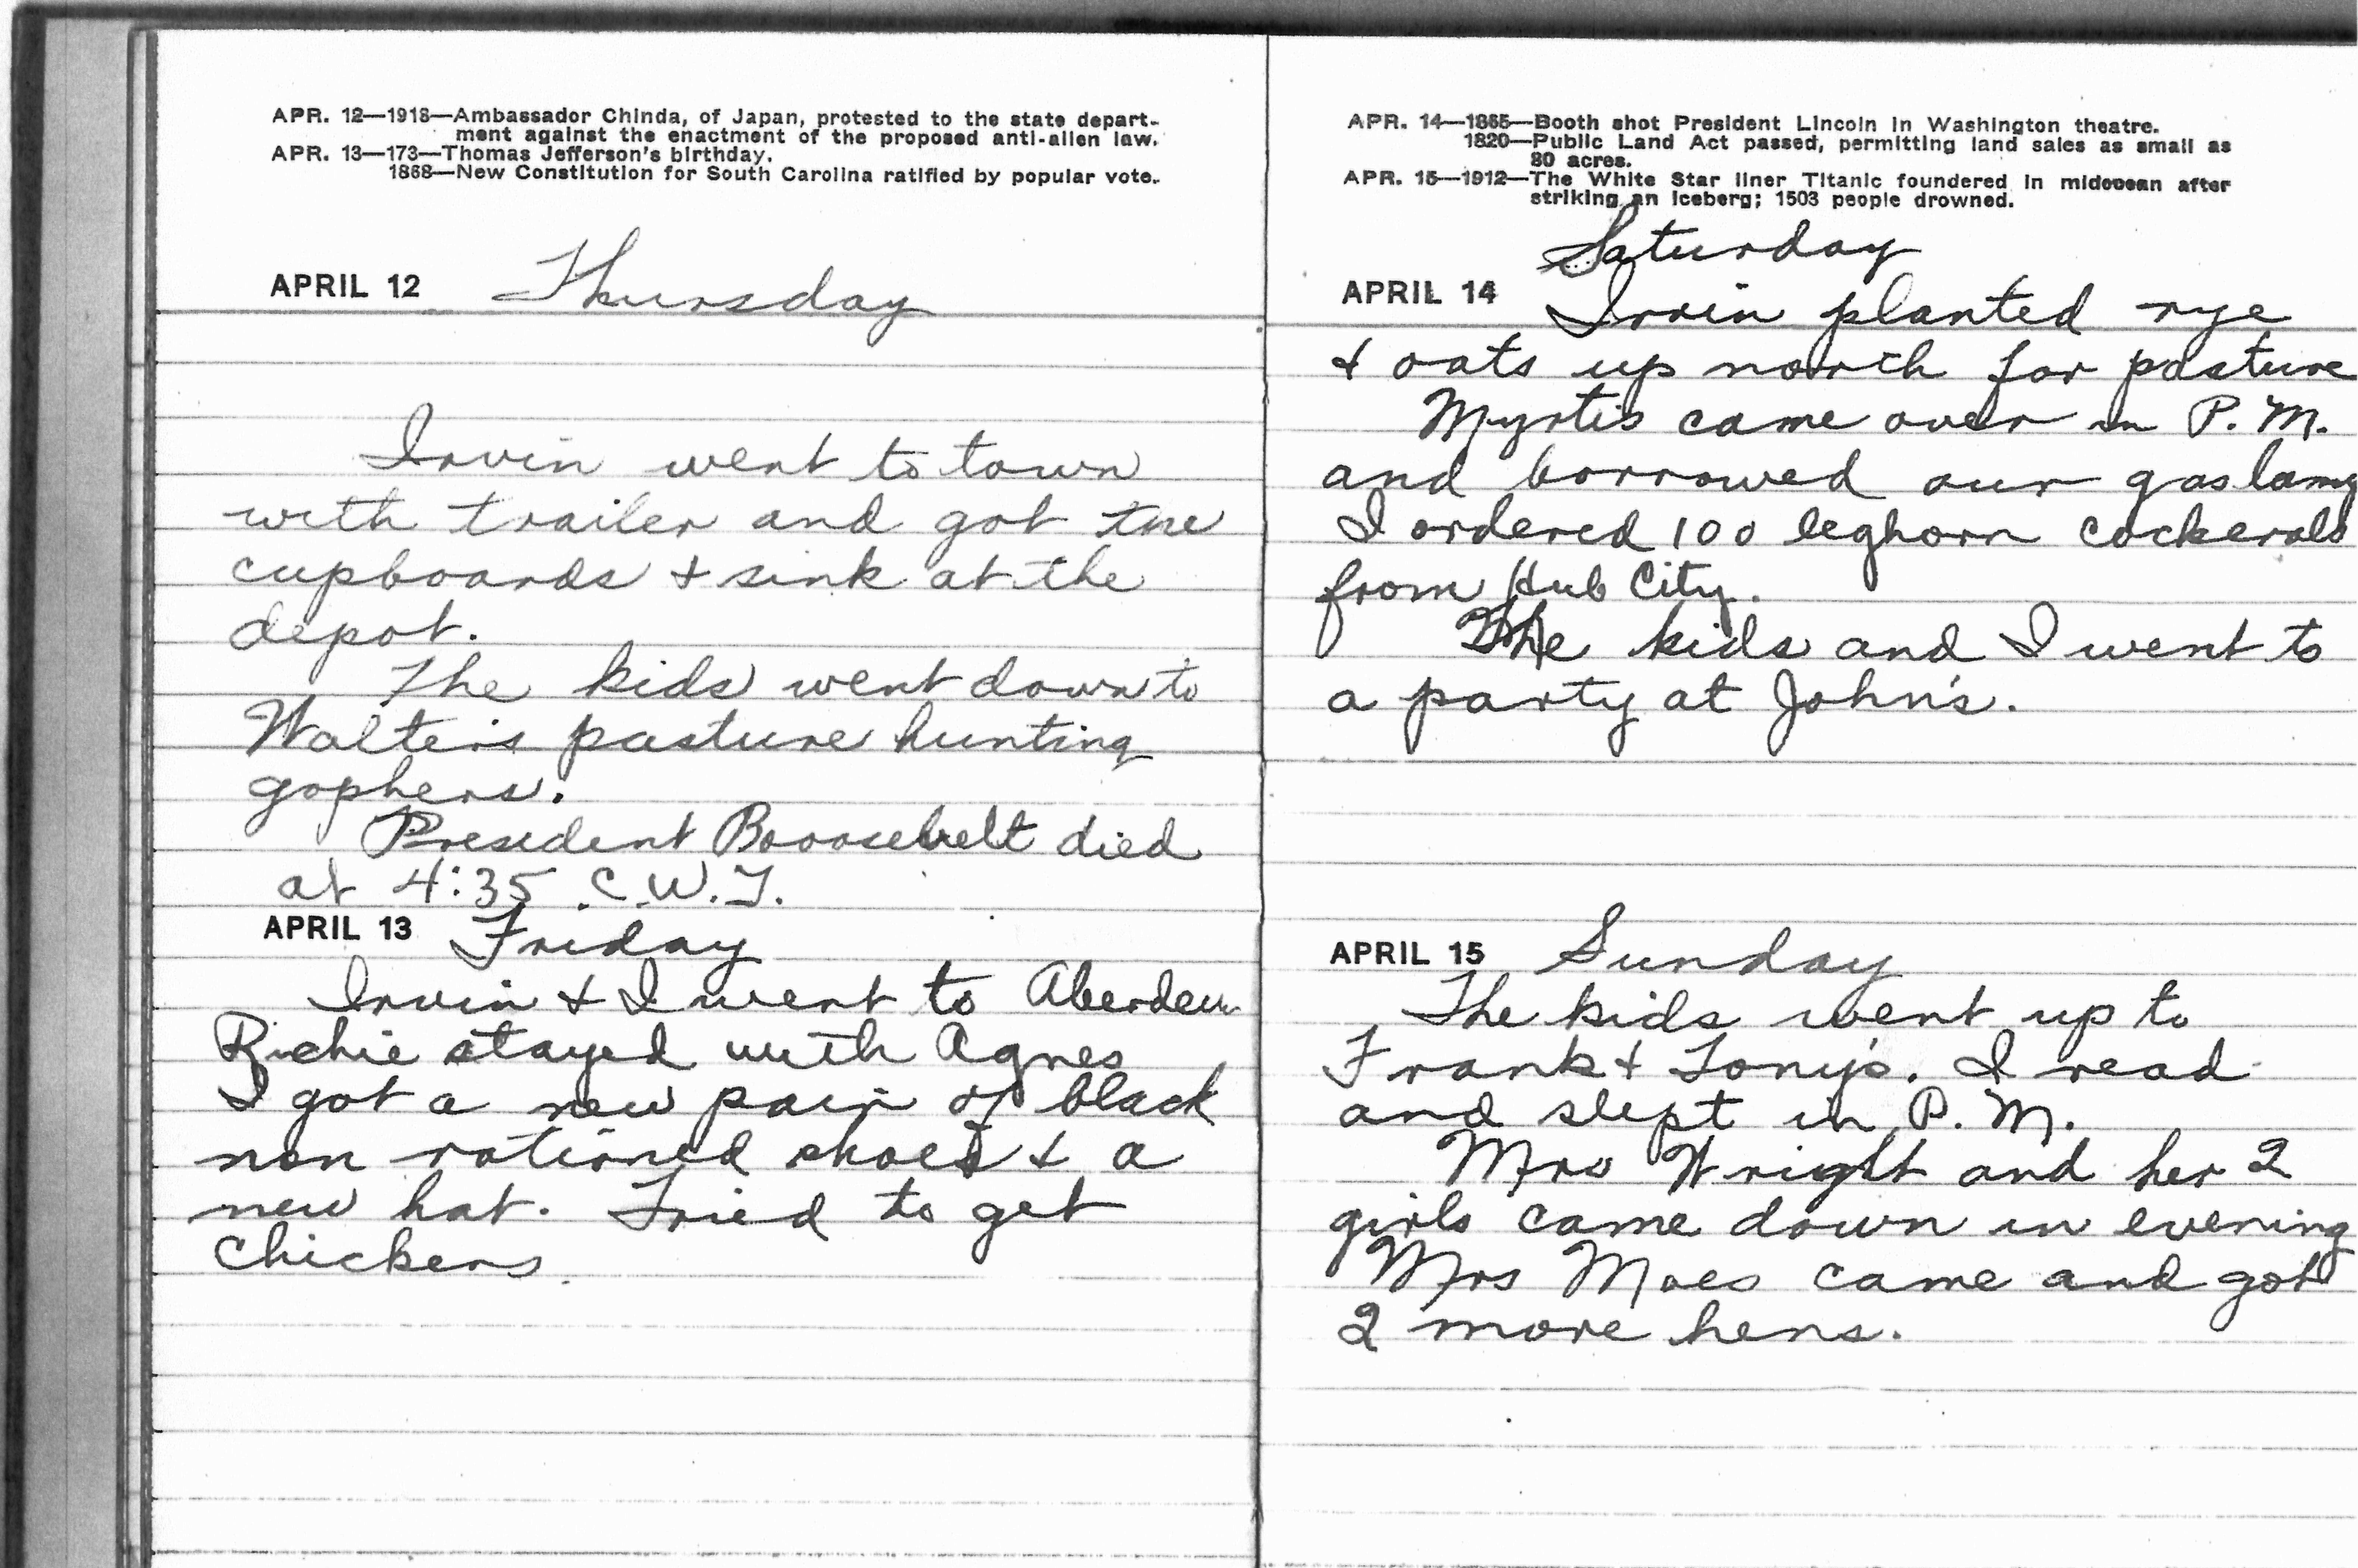 APR. 12—1918—Ambassador Chinda, of Japan, protested to the state depart-
ment against the enactment of the proposed anti-alien law.
APR. 13—173—Thomas Jefferson's birthday.
1868—New Constitution for South Carolina ratified by popular vote.
APRIL 12 Thursday
Irvin went to town
with trailer and got the
cupboards & sink at the
depot.
The kids went down to
Walter's pasture hunting
gophers.
President Rooosevelt died
at 4:35 C.W.T.
APRIL 13 Friday
Irvin & I went to Aberdeen
Richie stayed with Agnes
I got a new pair of black
non rationed shoes & a
new hat. Tried to get
chickens.
APR. 14—1865—Booth shot President Lincoln in Washington theatre.
1820—Public Land Act passed, permitting land sales as small as
80 acres.
APR. 15—1912—The White Star liner Titanic foundered in midocean after
striking an iceberg; 1503 people drowned.
Saturday
APRIL 14 Irvin planted rye
& oats up north for pasture
Myrtis came over in P.M.
and borrowed our gas lamp
I ordered 100 leghorn cockerals
from Hub City.
The kids and I went to
a party at John's.
APRIL 15 Sunday
The kids went up to
Frank & Tony's. I read
and slept in P.M.
Mrs Wright and her 2
girls came down in evening
Mrs Moes came and got
2 more hens.